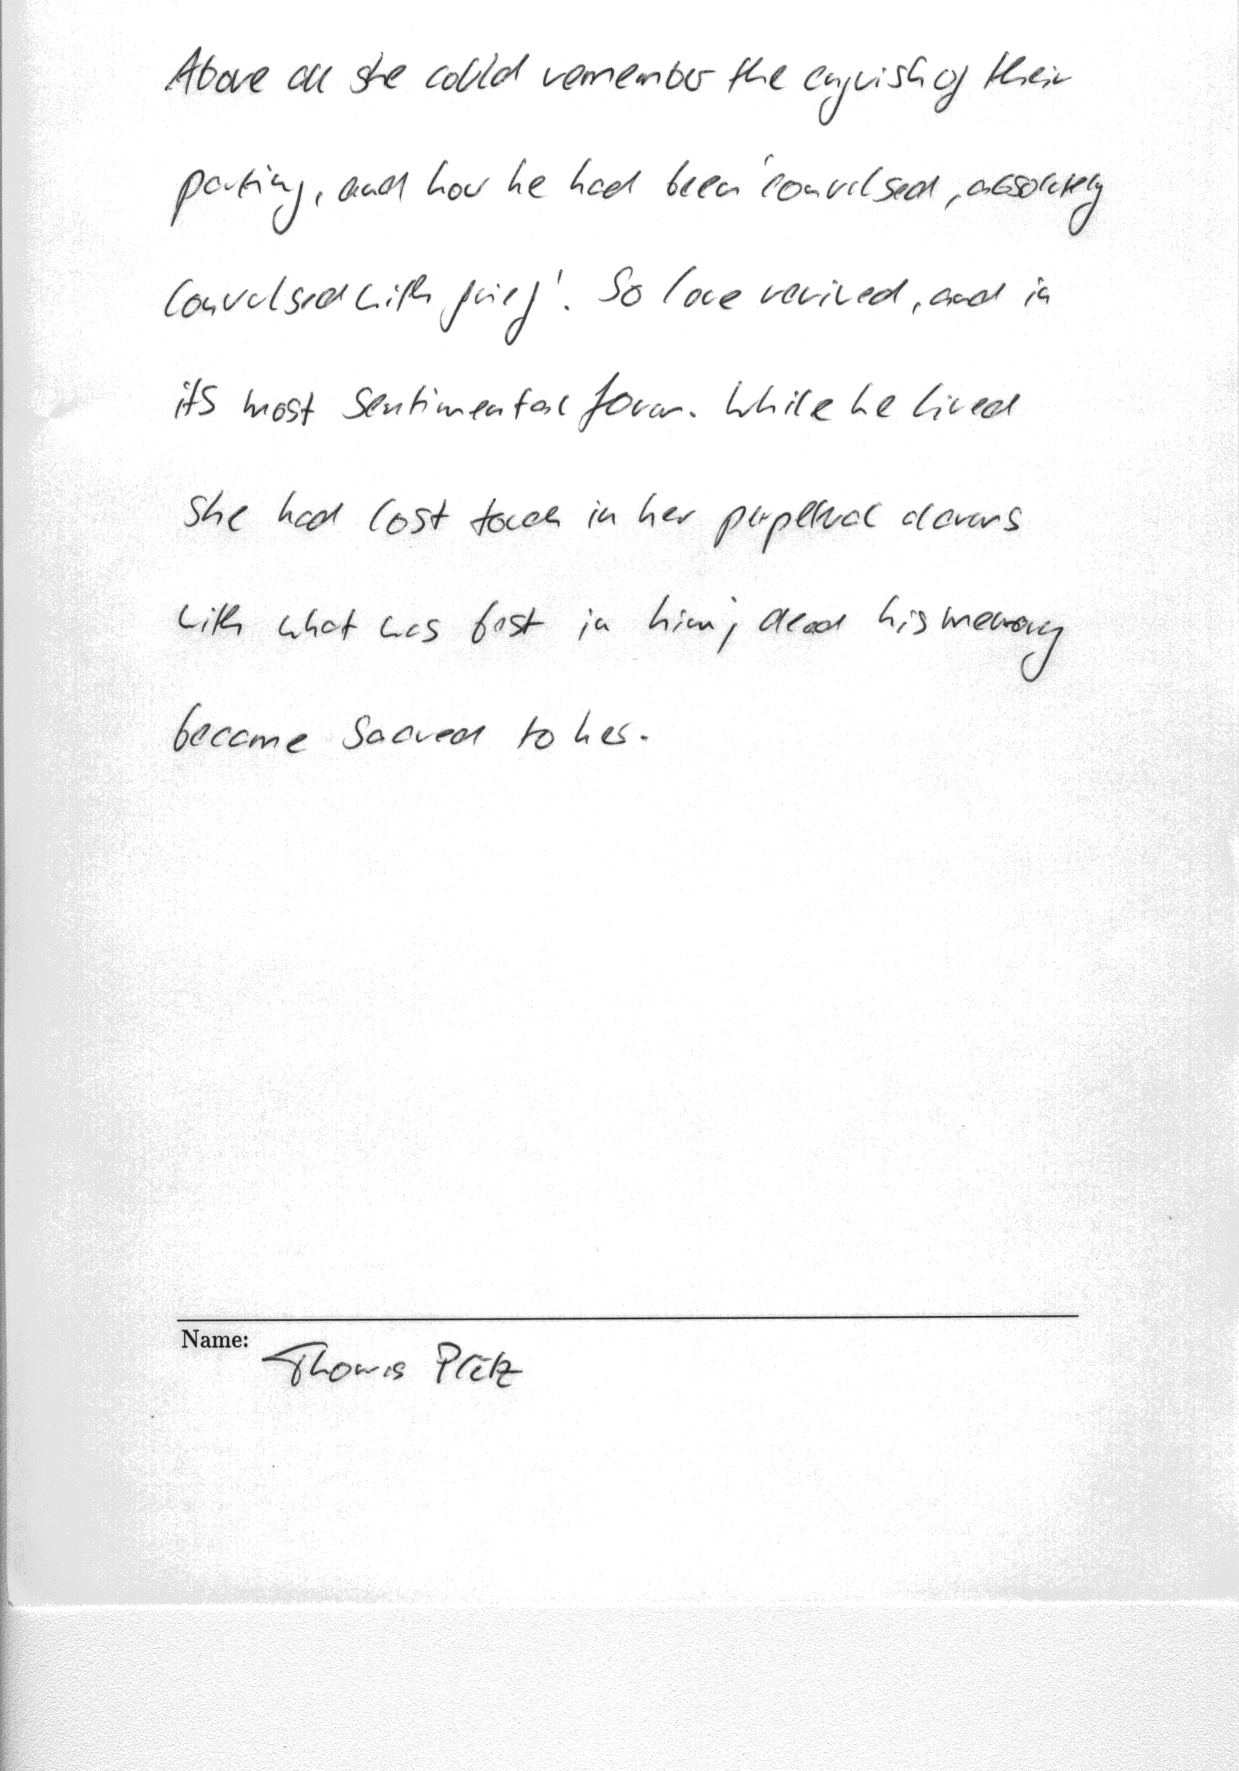 Above all she could remember the anguish of their
parting, and how he had been 'convulsed, absolutely
convulsed with grief'. So love revived, and in
its most sentimental form. While he lived
she had lost touch in her perpetual
with what was best in him; dead his memory
became sacred to her.
Name:
Thomas Plötz